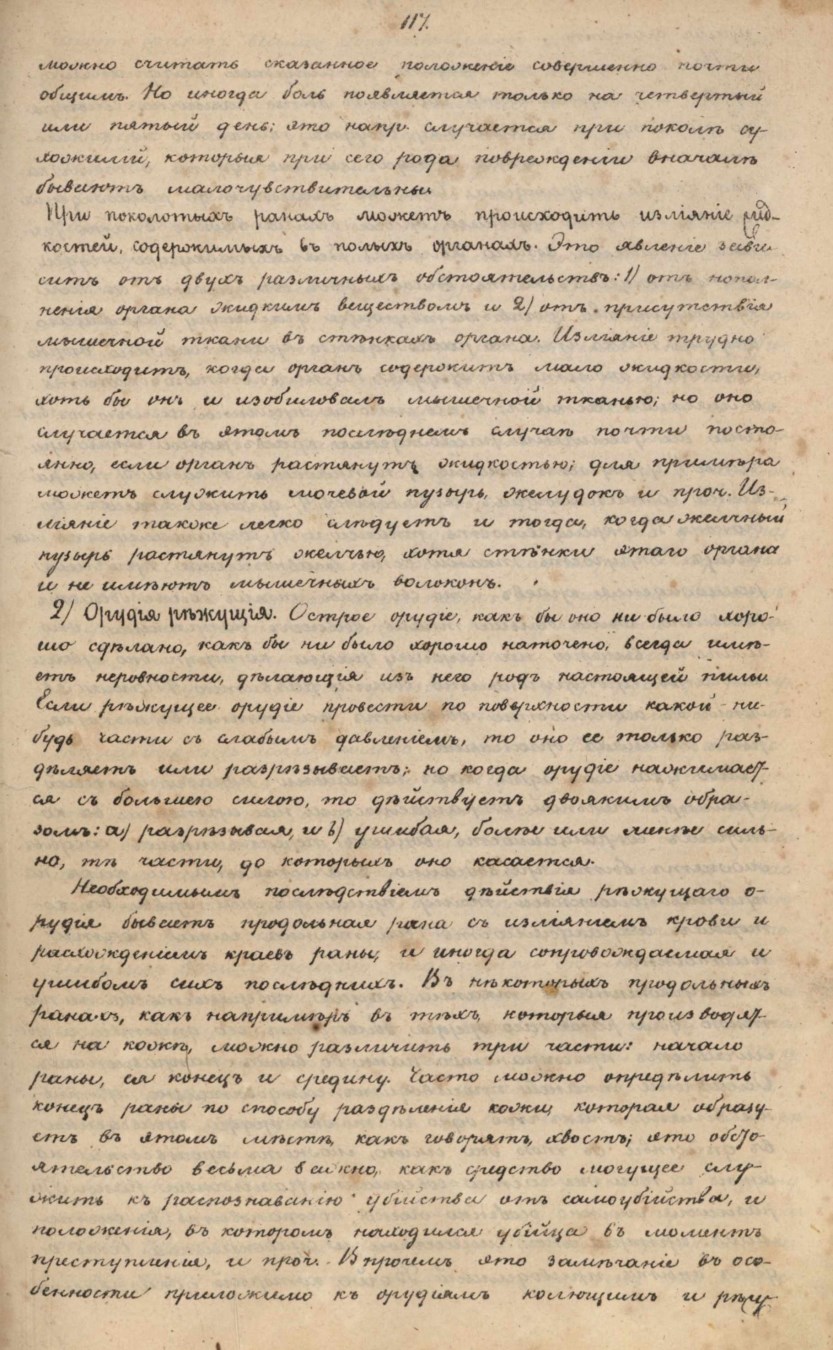 117.
можно считать сказанное положеніе совершенно почти
общимъ. Но иногда боль появляется только на четвертый
или пятый день; это напр. случается при поколѣ су-
хожилій, которыя при сего рода поврежденіи вначалѣ
бываютъ малочувствительны
При поколотыхъ ранахъ можетъ происходить изліяніе жид-
костей, содержимыхъ въ полыхъ органахъ. Это явленіе зави
ситъ отъ двухъ различныхъ обстоятельствъ: 1) отъ напол-
ненія органа жидкимъ веществомъ и 2) отъ присутствія
мышечной ткани въ стѣнкахъ органа. Изліяніе трудно
происходитъ, когда органъ содержитъ мало жидкости,
хоть бы онъ и изобиловалъ мышечной тканью; но оно
случается въ этомъ послѣднемъ случаѣ почти посто-
янно, если органъ растянутъ жидкостью; для примѣра
можетъ служить мочевой пузырь, желудокъ и проч. Из-
ліяніе также легко слѣдуетъ и тогда, когда желчный
пузырь растянутъ желчью, хотя стѣнки этаго органа
и не имѣютъ мышечныхъ волоконъ.
2) Орудія рѣжущія. Острое орудіе, какъ бы оно ни было хоро-
шо сдѣлано, какъ бы ни было хорошо наточено, всегда имѣ-
етъ неровности, дѣлающія изъ него родъ настоящей пилы.
Если рѣжущее орудіе провести по поверхности какой-ни-
будь части съ слабымъ давленіемъ, то оно ее только раз-
дѣляетъ или разрѣзываетъ; но когда орудіе нажимает-
ся съ большею силою, то дѣйствуетъ двоякимъ обра-
зомъ: a) разрѣзывая, и b) ушибая, болѣе или менѣе силь-
но, тѣ части, до которыхъ оно касается.
Необходимымъ послѣдствіемъ дѣйствія рѣжущаго о-
рудія бываетъ продольная рана съ изліяніемъ крови и
расхожденіемъ краевъ раны, и иногда сопровождаемая и
ушибомъ сихъ послѣднихъ. Въ нѣкоторыхъ продольныхъ
ранахъ, какъ напримѣръ въ тѣхъ, которыя производят-
ся на кожѣ, можно различить три части: начало
раны, ея конецъ и средину. Часто можно опредѣлить
конецъ раны по способу раздѣленія кожи, которая образу-
етъ въ этомъ мѣстѣ, какъ говорятъ, хвостъ; это обсто-
ятельство весьма важно, какъ средство могущее слу-
жить къ распознаванію убійства отъ самоубійства, и
положенія, въ которомъ находился убійца въ моментъ
преступленія, и проч. Впрочемъ это замѣчаніе въ осо-
бенности приложимо къ орудіямъ колющимъ и рѣжу